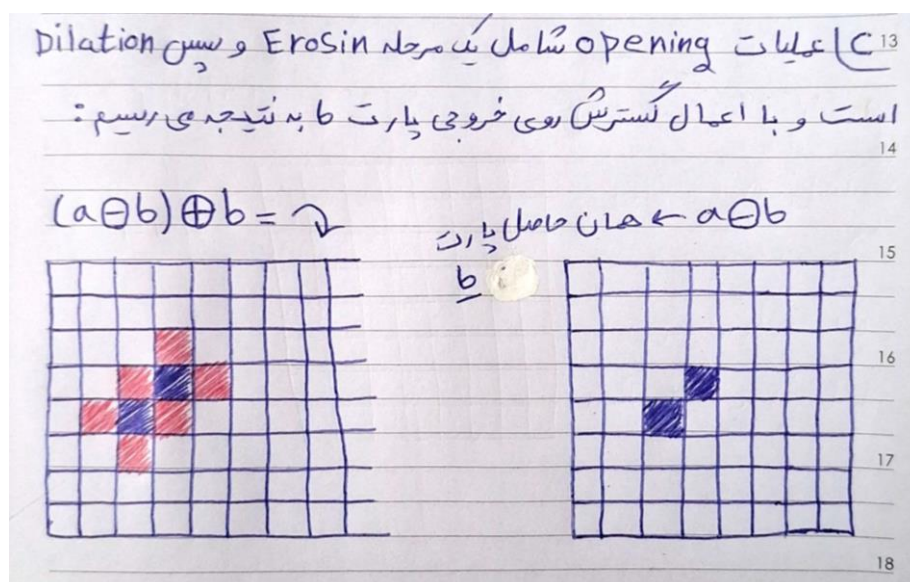 C) عملیات opening شامل یک مرحله Erosin و سپس Dilation
است و با اعمال گسترش روی خروجی پارت b به نتیجه می رسیم:
a⊖b ← همان حاصل پارت b
(a⊖b)⊕b =
13
14
15
16
17
18